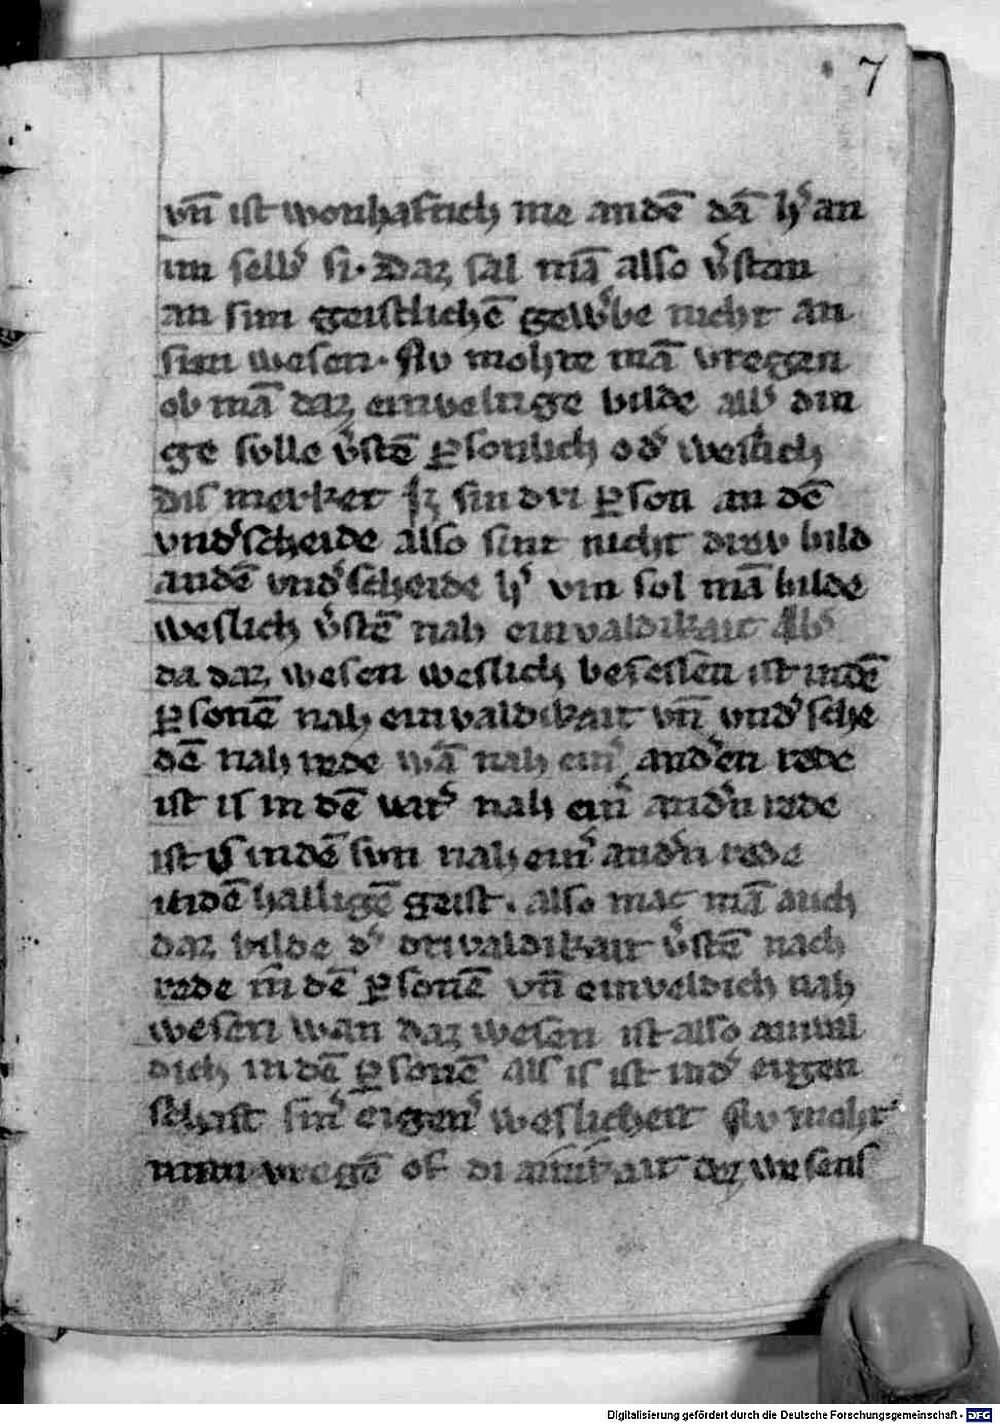 7
vn̄ ist wonhaftich me an dē dā h͛ an
im selb͛ si. Daz sal mā also v͛stan
an sim geistlichē gew͛be nicht an
sim wesen. Nv mohte mā vregen
ob mā daz einveltige bilde all͛ din
ge svlle v͛stē ꝑsonlich od͛ weslich
Dis merket sz sin dri ꝑson an dē
vnd͛scheide also sint nicht driv bild
an dē vnd͛scheide h͛ vm sol mā bilde
weslich v͛stē nah einvaldikait
da daz wesen weslich besessen ist in dē
ꝑsonē nah einvaldikait vn̄ vnd͛sche
dē nah rede wā nah ein͛ and͛en rede
ist is in dē vat͛ nah ein͛ and͛n rede
ist is in dē svn nah ein͛ and͛n rede
in dē hailigē geist. also mac mā auch
daz bilde d͛ drivaldikait v͛stē nach
rede in dē ꝑsonē vn̄ einveldich nah
wesen wan daz wesen ist also ainval
dich in dē ꝑsonē als is ist in d͛ eigen
schaft sin͛ eigen͛ weslicheit Nv moht
man vregē of di ainikait dez wesens
Digitalisierung gefördert durch die Deutsche Forschungsgemeinschaft - DFG